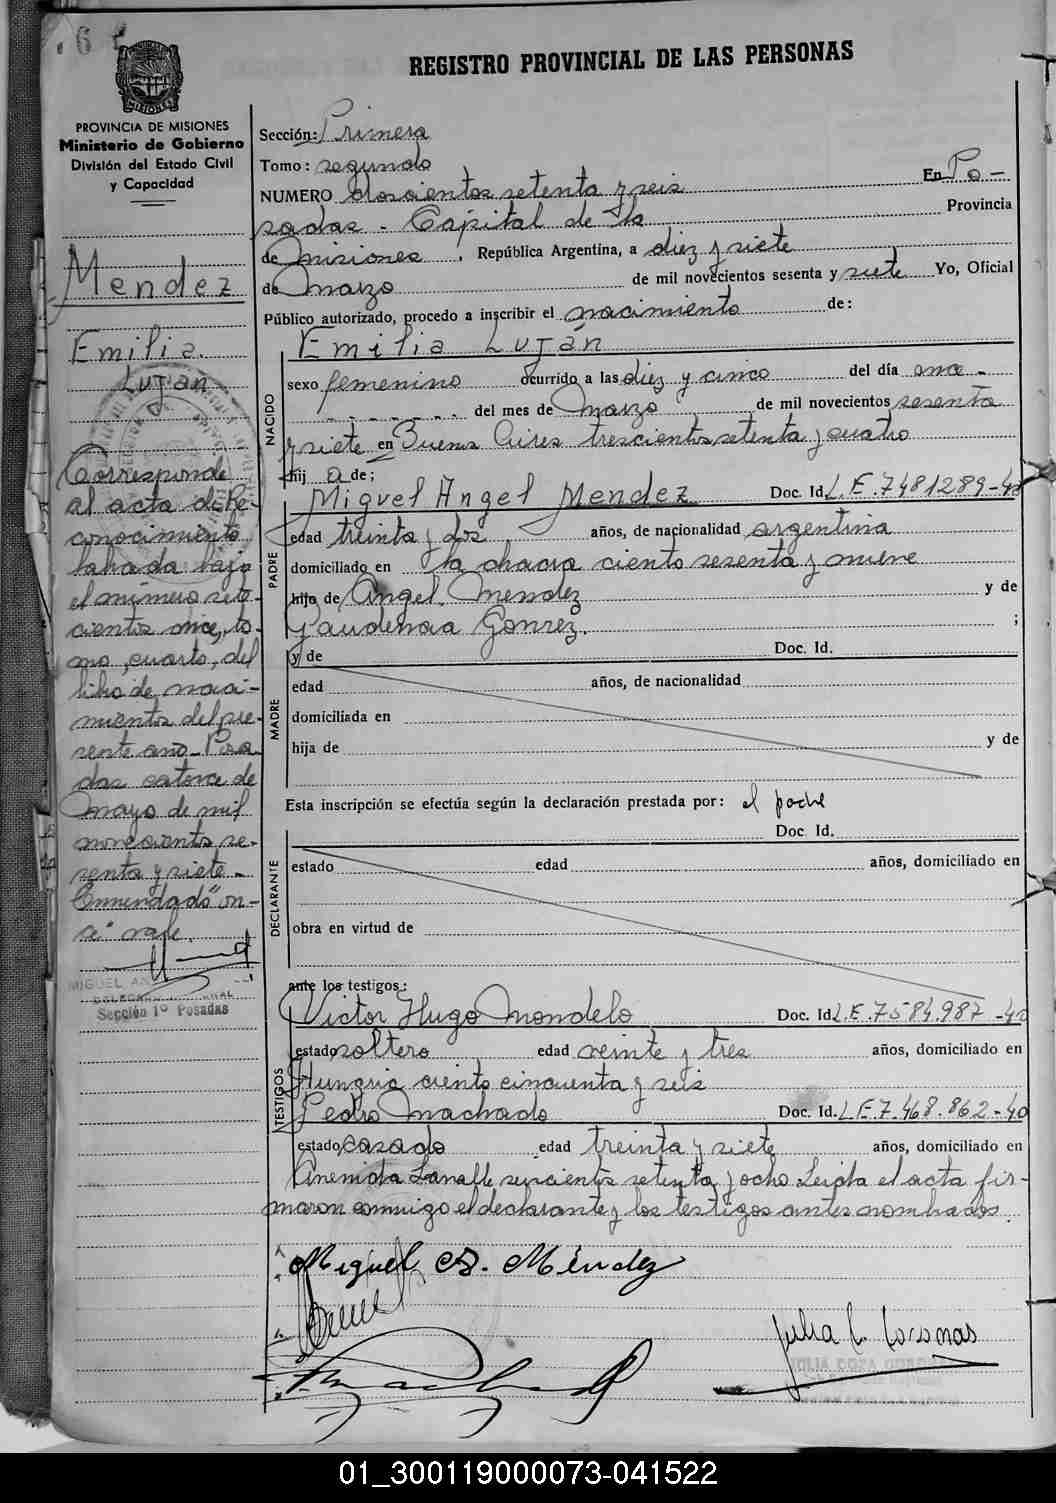 REGISTRO PROVINCIAL DE LAS PERSONAS
MISIONES
PROVINCIA DE MISIONES
Ministerio de Gobierno
División del Estado Civil
y Capacidad
Mendez
Emilia
Luján
Corresponde
al acta de Re-
conocimiento
labrada bajo
el número sete-
cientos once, to-
mo, cuarto, del
libro de naci-
mientos del pre-
sente año_ Posa
das catorce de
mayo de mil
novecientos se-
senta y siete_
Enmendado "on-
ce" vale.
MIGUEL AN
Sección 1º Posadas
Sección: Primera
Tomo: segundo
NUMERO doscientos setenta y seis En Po-
sadas - Capital de la Provincia
de Misiones, República Argentina, a diez y siete
de Marzo de mil novecientos sesenta y siete Yo, Oficial
Público autorizado, procedo a inscribir el nacimiento de:
NACIDO
Emilia Luján
sexo femenino ocurrido a las diez y cinco del día once -
del mes de Marzo de mil novecientos sesenta
y siete en Buenos Aires trescientos setenta y cuatro
hij a de;
PADRE
Miguel Angel Mendez Doc. Id. L.E. 7481289-40
edad treinta y dos años, de nacionalidad argentina
domiciliado en la chacra ciento sesenta y nueve
hijo de Angel Mendez y de
Gaudencia Gonrez. ;
y de Doc. Id.
MADRE
edad años, de nacionalidad
domiciliada en
hija de y de
Esta inscripción se efectúa según la declaración prestada por: el padre
Doc. Id.
DECLARANTE
estado edad años, domiciliado en
obra en virtud de
ante los testigos:
TESTIGOS
Victor Hugo Mondelo Doc. Id. L.E. 7584.987-40
estado soltero edad veinte y tres años, domiciliado en
Hungria ciento cincuenta y seis
Pedro Machado Doc. Id. L.E. 7.468.862-40
estado casado edad treinta y siete años, domiciliado en
Avenida Lavalle seiscientos setenta y ocho Leida el acta fir-
maron conmigo el declarante y los testigos antes nombrados.
Miguel A. Méndez
Julia C. Coronas
01_300119000073-041522